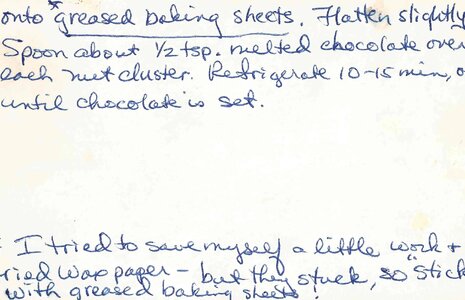 onto *greased baking sheets. Flatten slightly
Spoon about 1/2 tsp. melted chocolate over
each nut cluster. Refrigerate 10-15 min, o
until chocolate is set.
I tried to save myself a little work +
ried wax paper - but they stuck, so "stick
with greased baking sheets!